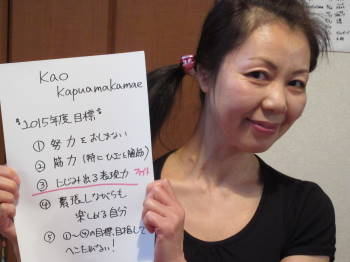 Kao
Kapuamakamae
2015年度目標
① 努力をおしまない
② 筋力(特にひざと腹筋)
③ にじみ出る表現力
④ 緊張しながらも
楽しめる自分
⑤ ①〜④の目標、目指して
へこたれない!